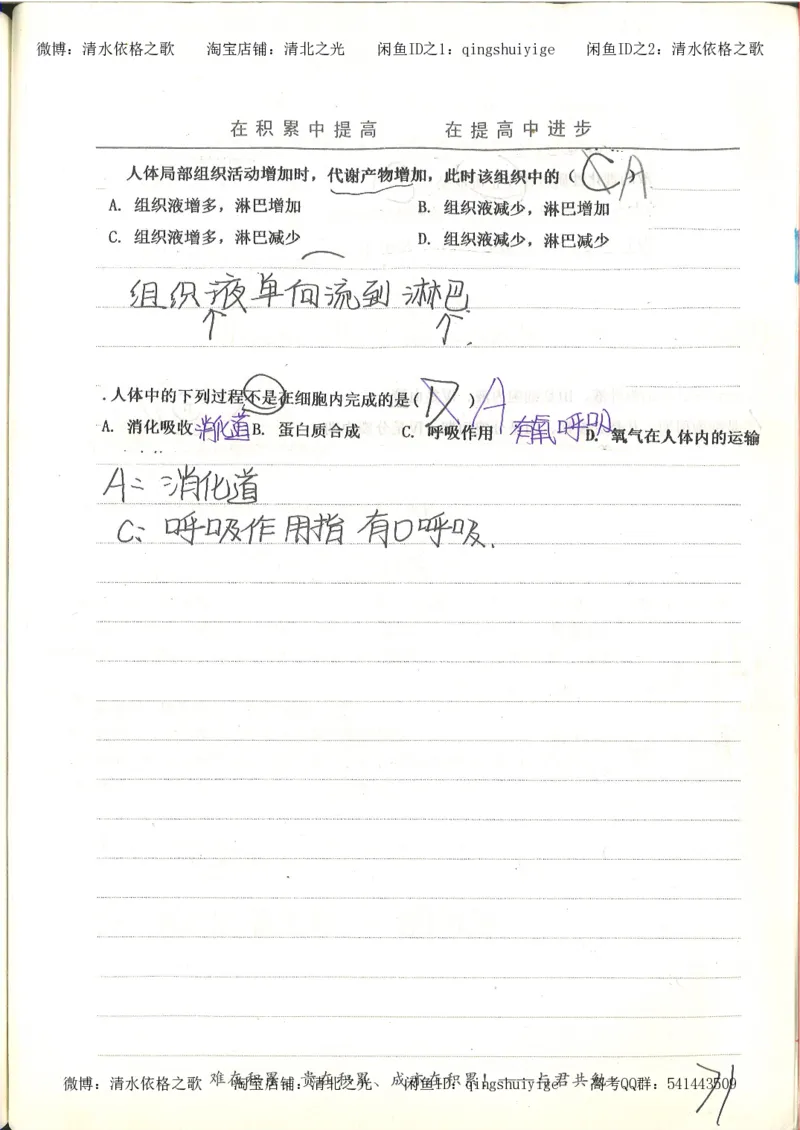 微博：清水依格之歌 淘宝店铺：清北之光 闲鱼ID之1：qingshuiyige 闲鱼ID之2：清水依格之歌
在积累中提高 在提高中进步
人体局部组织活动增加时，代谢产物增加，此时该组织中的（ C ）A
A. 组织液增多，淋巴增加 B. 组织液减少，淋巴增加
C. 组织液增多，淋巴减少 D. 组织液减少，淋巴减少
组织液单向流到淋巴
.人体中的下列过程不是在细胞内完成的是( D ) A
A. 消化吸收 消化道 B. 蛋白质合成 C. 呼吸作用 有氧呼吸 D. 氧气在人体内的运输
A: 消化道
C: 呼吸作用指有O呼吸.
难在积累、贵在积累、成亦在积累！——与君共勉
微博：清水依格之歌 淘宝店铺：清北之光 闲鱼ID：qingshuiyige 高考QQ群：541443509
71